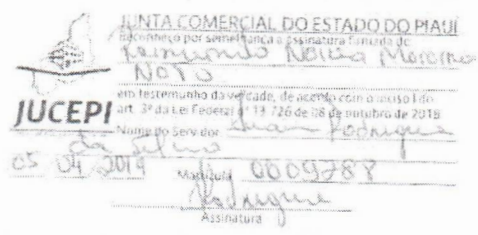 JUNTA COMERCIAL DO ESTADO DO PIAUÍ
Reconheço por semelhança a assinatura firmada de
Raimundo
Noto
em testemunho da verdade, de acordo com o inciso I do
art. 3º da Lei Federal nº 13.726 de 08 de outubro de 2018
JUCEPI
Nome do Servidor Juan Rodrigues
da Silva
05 04 2019 Matrícula 0009788
Rodrigues
Assinatura